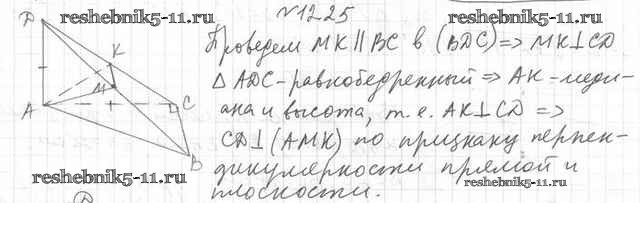 №1225
reshebnik5-11.ru
reshebnik5-11.ru
D
K
M
A
C
B
Проведем MK || BC в (BDC) => MK⊥CD
△ ADC - равнобедренный => AK - меди-
ана и высота, т.е. AK⊥CD =>
CD⊥(AMK) по признаку перпен-
дикулярности прямой и
плоскости.
reshebnik5-11.ru
reshebnik5-11.ru